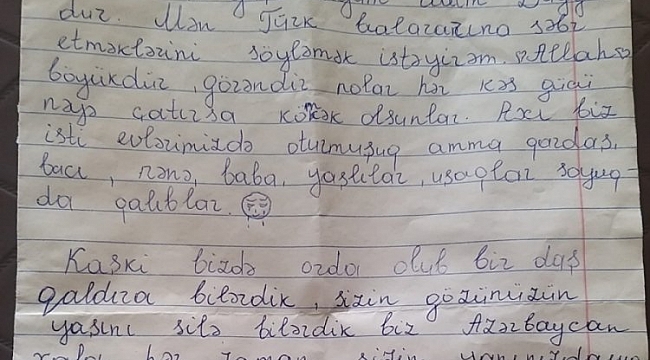 dur. Mən Türk balalarına səbr
etməklərini söyləmək istəyirəm. Allah
böyükdür, görəndir nolar hər kəs gücü
nəyə çatırsa kömək olsunlar. Axı biz
isti evlərimizdə oturmuşuq amma qardaş,
bacı, nənə, baba, yaşlılar, uşaqlar soyuq-
da qalıblar.
Kaşki bizdə orda olub bir daş
qaldıra bilərdik, sizin gözünüzün
yaşını silə bilərdik biz Azərbaycan
hər zaman sizin yanınızdayıq